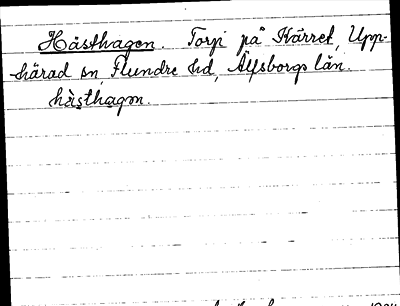 Hästhagen. Torp på Kärret, Upp-
härad sn, Flundre hd, Älfsborgs län.
hàsthagan.